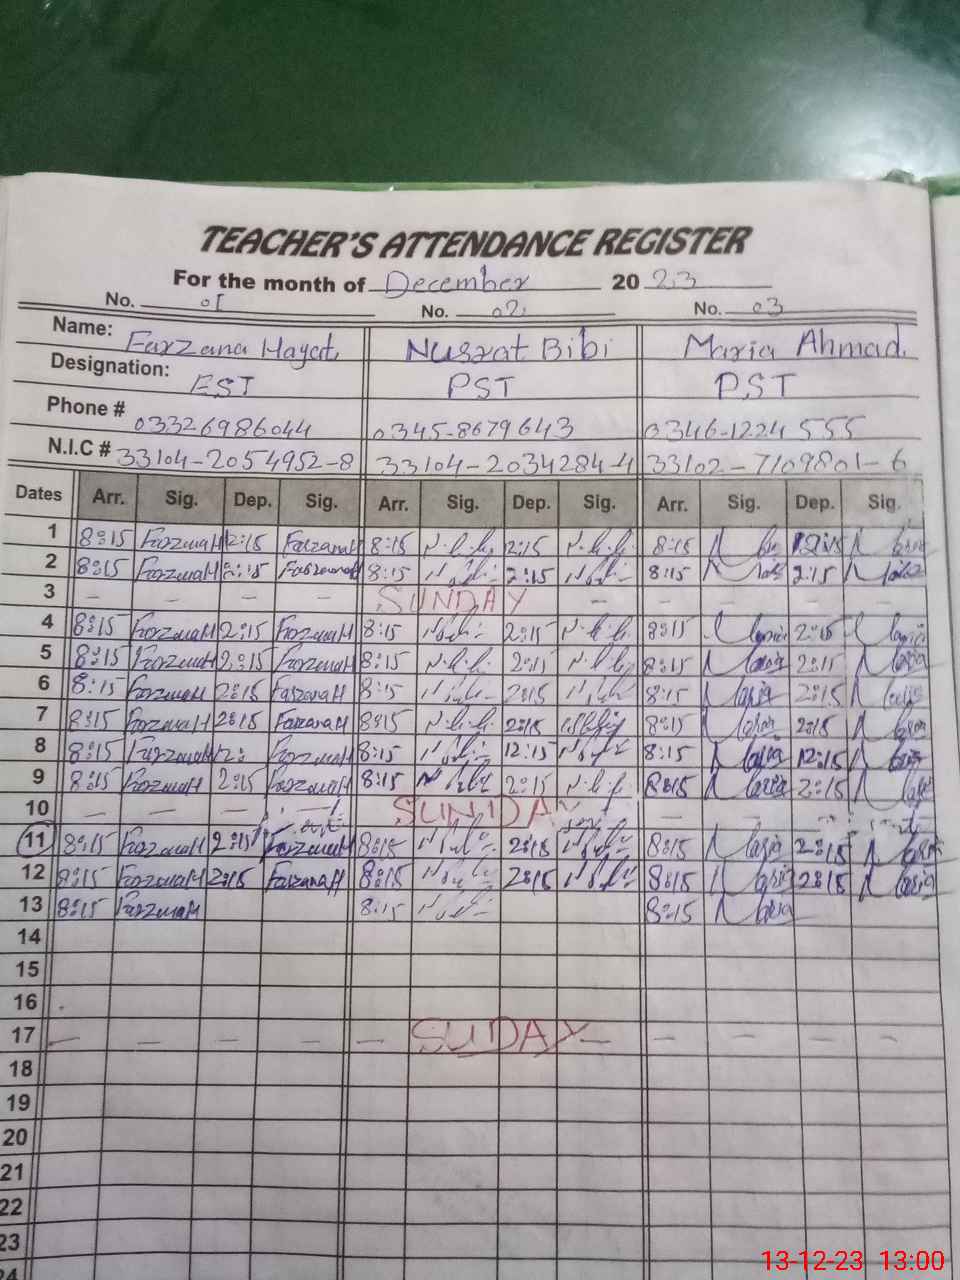 TEACHER'S ATTENDANCE REGISTER
For the month of December 2023
No. 01 No. 02 No. 03
Name: Farzana Hayat Nusrat Bibi Maria Ahmad
Designation: EST PST P.ST
Phone # 03326986044 0345-8679643 0346-1224555
N.I.C # 33104-2054952-8 33104-2034284-4 33102-7109801-6
Dates Arr. Sig. Dep. Sig. Arr. Sig. Dep. Sig. Arr. Sig. Dep. Sig.
1 8:15 FarzanaH 12:15 FarzanaH 8:15 2:15 8:15 12:15 Maria
2 8:15 FarzanaH 2:15 FarzanaH 8:15 2:15 8:15 2:15 Maria
3 – – – – SUNDAY – – – – –
4 8:15 FarzanaH 2:15 FarzanaH 8:15 2:15 8:15 Maria 2:15 Maria
5 8:15 FarzanaH 2:15 FarzanaH 8:15 2:15 8:15 Maria 2:15 Maria
6 8:15 FarzanaH 2:15 FarzanaH 8:15 2:15 8:15 Maria 2:15 Maria
7 8:15 FarzanaH 2:15 FarzanaH 8:15 2:15 8:15 Maria 2:15 Maria
8 8:15 FarzanaH 12: FarzanaH 8:15 12:15 8:15 Maria 12:15 Maria
9 8:15 FarzanaH 2:15 FarzanaH 8:15 2:15 8:15 Maria 2:15 Maria
10 – – – SUNDAY – – –
11 8:15 FarzanaH 2:15 FarzanaH 8:15 2:15 8:15 Maria 2:15 Maria
12 8:15 FarzanaH 2:15 FarzanaH 8:15 2:15 8:15 Maria 2:15 Maria
13 8:15 FarzanaH 8:15 8:15 Maria
14
15
16
17 – – – – – SUDAY – – – – –
18
19
20
21
22
23
24
13-12-23 13:00